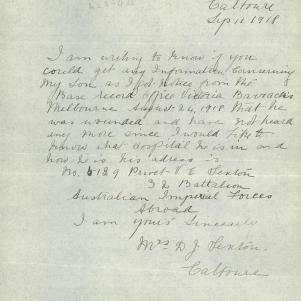 Caltowie
Sep 11 1918
I am writing to know if you
could get any Information Concerning
My Son as I got notice from the
Base Record Office Victoria Barracks
Melbourne August 26, 1918 that he
was wounded and have not heard
any more since I would like to
know what Hospital he is in and
how he is his adress is
No. 5189 Privet V E Sexton
32 Battalion
Australian Imperial Forces
Abroad
I am yours Sincerely
Mrs D. J. Sexton.
Caltowie